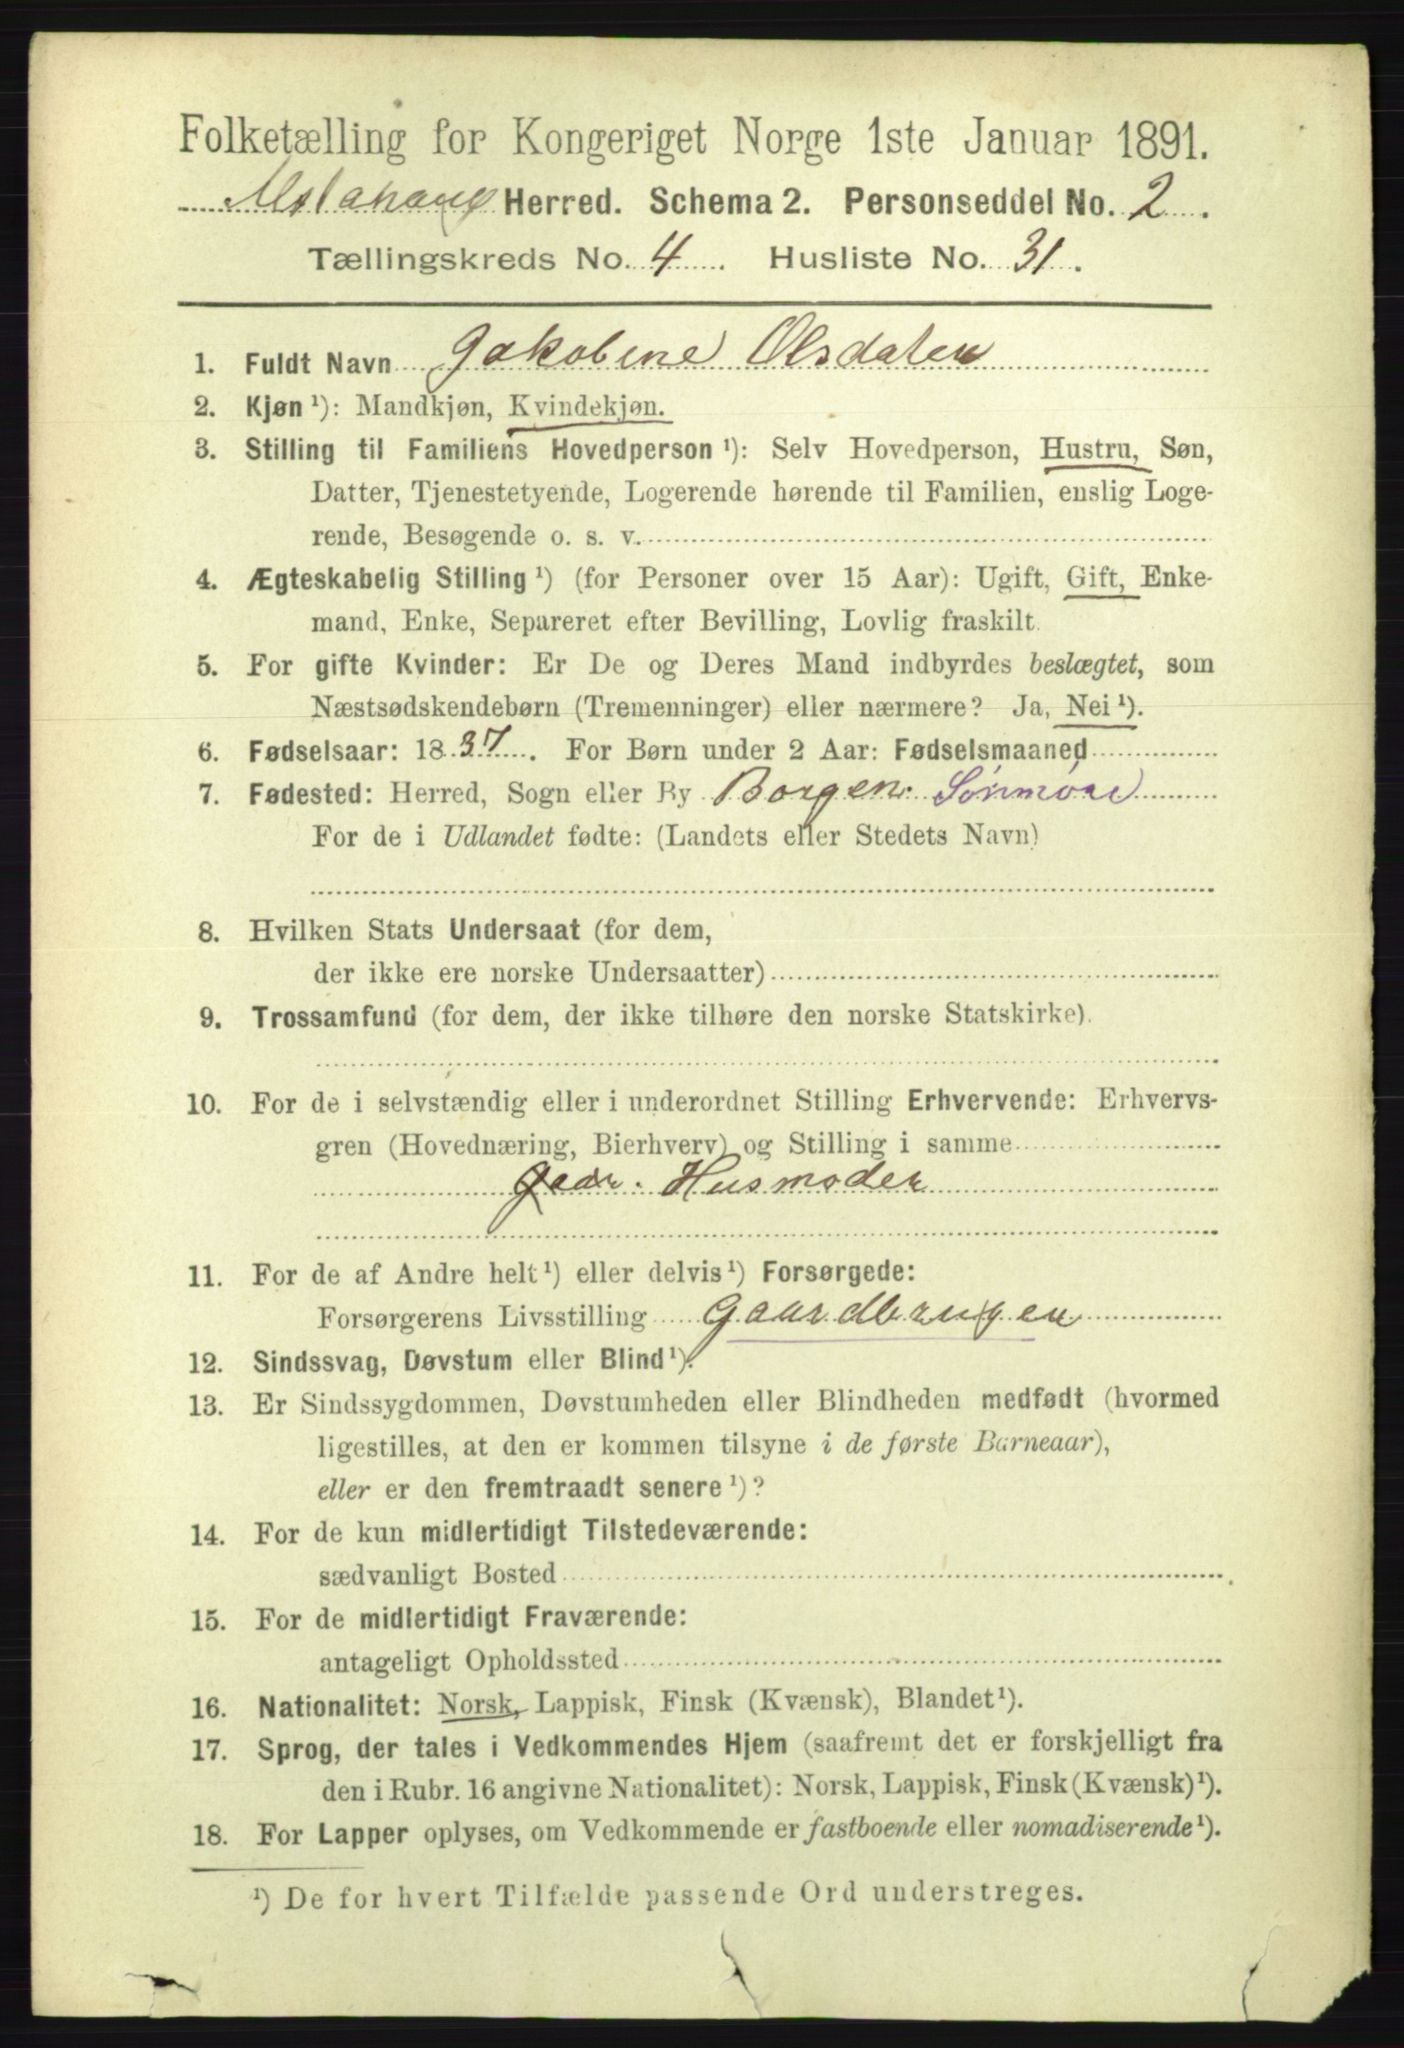 Folketælling for Kongeriget Norge 1ste Januar 1891.
Alstahaug Herred. Schema 2. Personseddel No. 2.
Tællingskreds No. 4. Husliste No. 31.
1. Fuldt Navn Jakobine Olsdater
2. Kjøn ¹): Mandkjøn, Kvindekjøn.
3. Stilling til Familiens Hovedperson ¹): Selv Hovedperson, Hustru, Søn,
Datter, Tjenestetyende, Logerende hørende til Familien, enslig Loge-
rende, Besøgende o. s. v.
4. Ægteskabelig Stilling ¹) (for Personer over 15 Aar): Ugift, Gift, Enke-
mand, Enke, Separeret efter Bevilling, Lovlig fraskilt.
5. For gifte Kvinder: Er De og Deres Mand indbyrdes beslægtet, som
Næstsødskendebørn (Tremenninger) eller nærmere? Ja, Nei ¹).
6. Fødselsaar: 1837. For Børn under 2 Aar: Fødselsmaaned
7. Fødested: Herred, Sogn eller By Borgen. Sønmøre
For de i Udlandet fødte: (Landets eller Stedets Navn)
8. Hvilken Stats Undersaat (for dem,
der ikke ere norske Undersaatter)
9. Trossamfund (for dem, der ikke tilhøre den norske Statskirke).
10. For de i selvstændig eller i underordnet Stilling Erhvervende: Erhvervs-
gren (Hovednæring, Bierhverv) og Stilling i samme
Gaar. Husmoder
11. For de af Andre helt ¹) eller delvis ¹) Forsørgede:
Forsørgerens Livsstilling Gaardbruger
12. Sindssvag, Døvstum eller Blind ¹).
13. Er Sindssygdommen, Døvstumheden eller Blindheden medfødt (hvormed
ligestilles, at den er kommen tilsyne i de første Barneaar),
eller er den fremtraadt senere ¹)?
14. For de kun midlertidigt Tilstedeværende:
sædvanligt Bosted
15. For de midlertidigt Fraværende:
antageligt Opholdssted
16. Nationalitet: Norsk, Lappisk, Finsk (Kvænsk), Blandet ¹).
17. Sprog, der tales i Vedkommendes Hjem (saafremt det er forskjelligt fra
den i Rubr. 16 angivne Nationalitet): Norsk, Lappisk, Finsk (Kvænsk) ¹).
18. For Lapper oplyses, om Vedkommende er fastboende eller nomadiserende ¹).
¹) De for hvert Tilfælde passende Ord understreges.